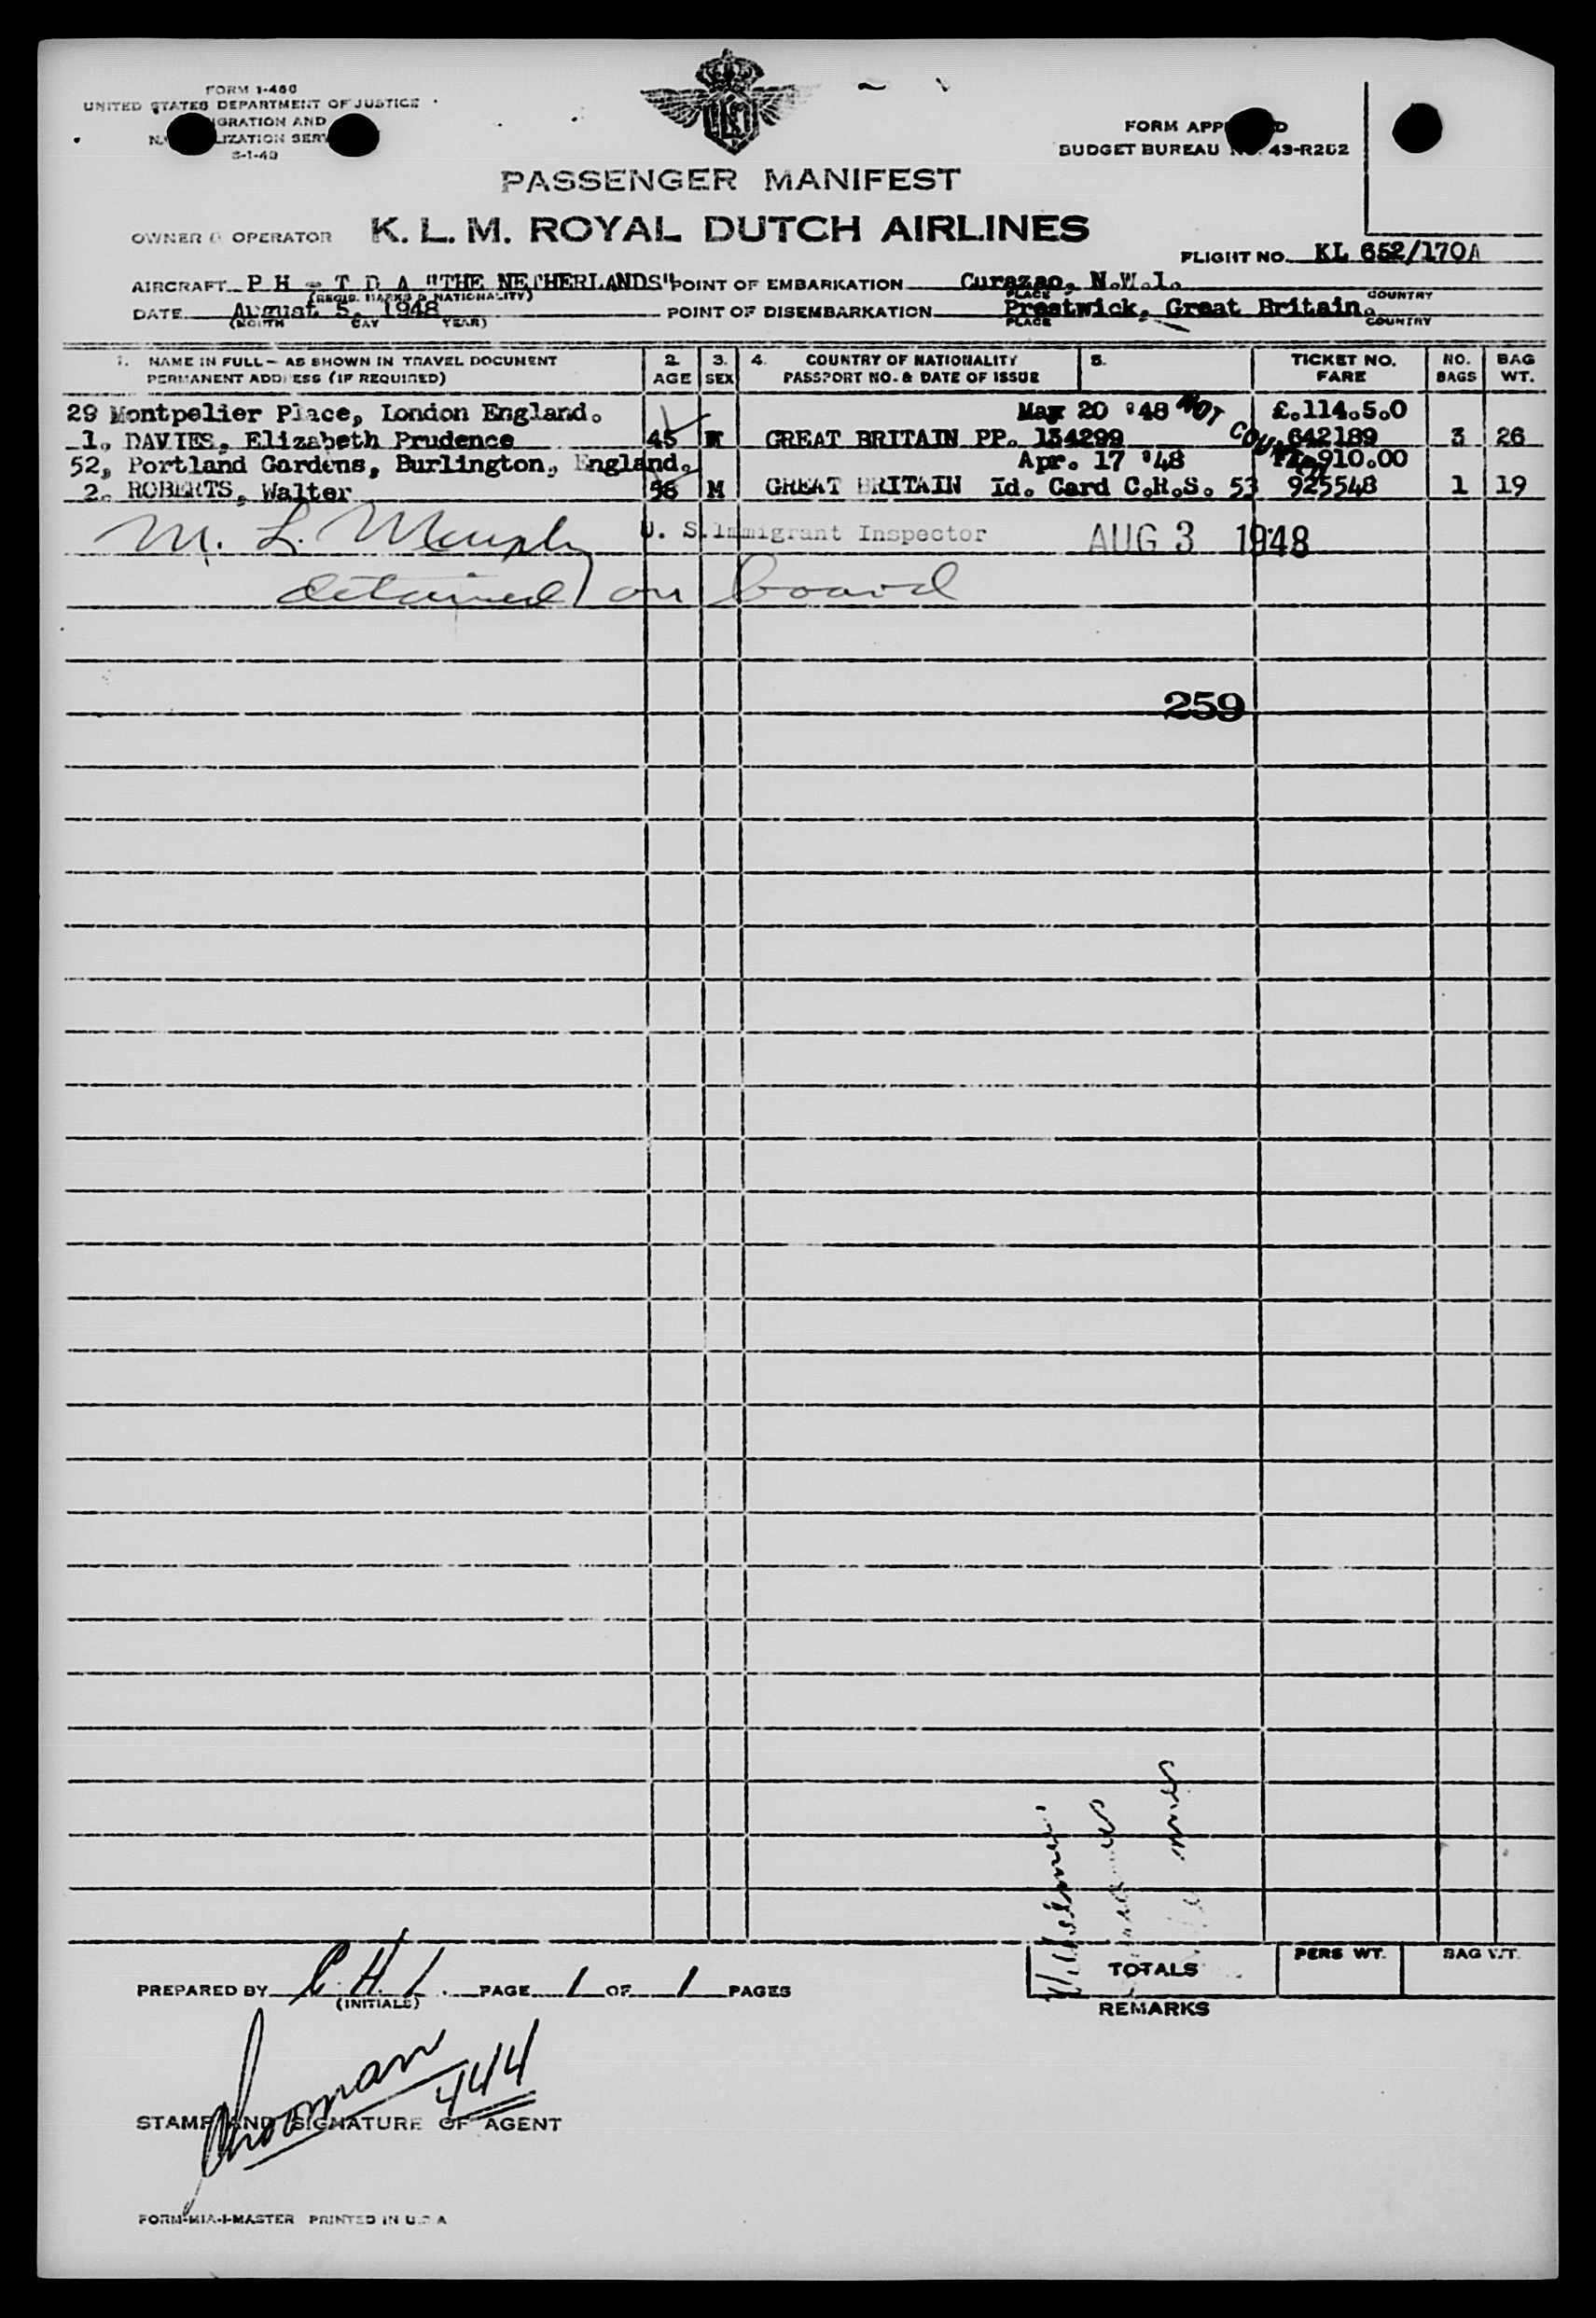 FORM I-466
UNITED STATES DEPARTMENT OF JUSTICE
IGRATION AND
LIZATION SERV
FORM APP D
BUDGET BUREAU NO. 43-R202
PASSENGER MANIFEST
OWNER OPERATOR K. L. M. ROYAL DUTCH AIRLINES
FLIGHT NO. KL 652/170A
AIRCRAFT P H - T D A "THE NETHERLANDS" POINT OF EMBARKATION Curazao, N.W.I.
(REGIS. MARKS & NATIONALITY) PLACE COUNTRY
DATE August 5, 1948 POINT OF DISEMBARKATION Prestwick, Great Britain.
(MONTH DAY YEAR) PLACE COUNTRY
1. NAME IN FULL – AS SHOWN IN TRAVEL DOCUMENT 2. 3. 4. COUNTRY OF NATIONALITY 5. TICKET NO. NO. BAG
PERMANENT ADDRESS (IF REQUIRED) AGE SEX PASSPORT NO. & DATE OF ISSUE FARE BAGS WT.
29 Montpelier Place, London England. May 20 '48 NOT £.114.5.0
1. DAVIES, Elizabeth Prudence 45 GREAT BRITAIN PP. 134299 642189 3 26
52, Portland Gardens, Burlington, England. Apr. 17 '48 910.00
2. ROBERTS, Walter 56 M GREAT BRITAIN Id. Card C.R.S. 53 925548 1 19
M. L. Murphy U. S. Immigrant Inspector AUG 3 1948
detained on board
259
TOTALS PERS WT. BAG WT.
PREPARED BY C. H. PAGE 1 OF 1 PAGES
(INITIALS)
REMARKS
444
STAMP AND SIGNATURE OF AGENT
FORM-MIA-I-MASTER PRINTED IN U.S.A